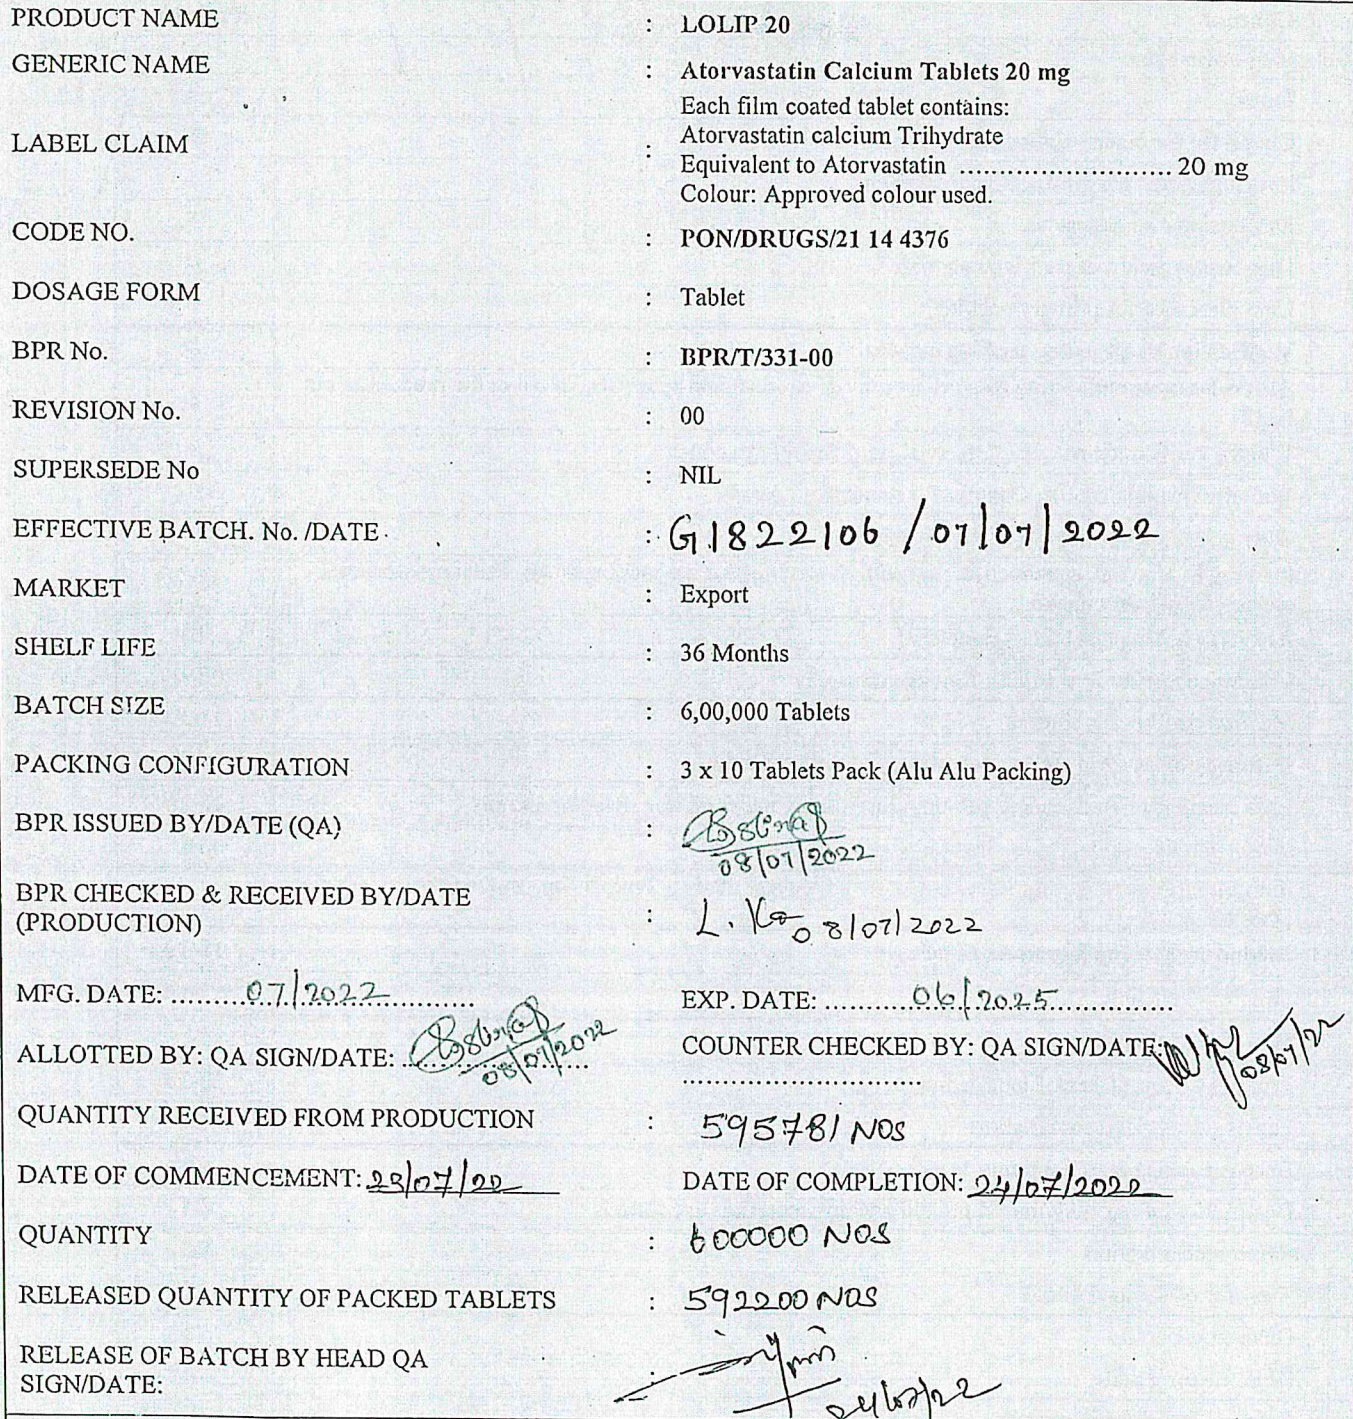 PRODUCT NAME : LOLIP 20
GENERIC NAME : Atorvastatin Calcium Tablets 20 mg
LABEL CLAIM : Each film coated tablet contains:
Atorvastatin calcium Trihydrate
Equivalent to Atorvastatin ........................... 20 mg
Colour: Approved colour used.
CODE NO. : PON/DRUGS/21 14 4376
DOSAGE FORM : Tablet
BPR No. : BPR/T/331-00
REVISION No. : 00
SUPERSEDE No : NIL
EFFECTIVE BATCH. No. /DATE : G1822106 / 07/07/2022
MARKET : Export
SHELF LIFE : 36 Months
BATCH SIZE : 6,00,000 Tablets
PACKING CONFIGURATION : 3 x 10 Tablets Pack (Alu Alu Packing)
BPR ISSUED BY/DATE (QA) :
08/07/2022
BPR CHECKED & RECEIVED BY/DATE
(PRODUCTION) : L. 08/07/2022
MFG. DATE: 07/2022 EXP. DATE: 06/2025
ALLOTTED BY: QA SIGN/DATE: 08/07/2022 COUNTER CHECKED BY: QA SIGN/DATE: 08/07/22
QUANTITY RECEIVED FROM PRODUCTION : 595781 NOS
DATE OF COMMENCEMENT: 23/07/22 DATE OF COMPLETION: 24/07/2022
QUANTITY : 600000 NOS
RELEASED QUANTITY OF PACKED TABLETS : 592200 NOS
RELEASE OF BATCH BY HEAD QA
SIGN/DATE: :